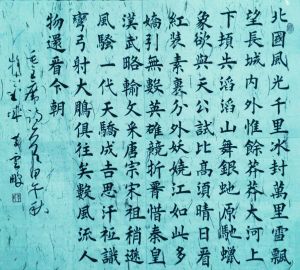 北國風光千里冰封萬里雪飄
望長城內外惟餘莽莽大河上
下頓失滔滔山舞銀蛇原馳蠟
象欲與天公試比高須晴日看
紅裝素裹分外妖嬈江如此多
嬌引無數英雄競折腰惜秦皇
漢武略輸文采唐宗宋祖稍遜
風騷一代天驕成吉思汗祗識
彎弓射大鵰俱往矣數風流人
物還看今朝
毛主席 甲午秋